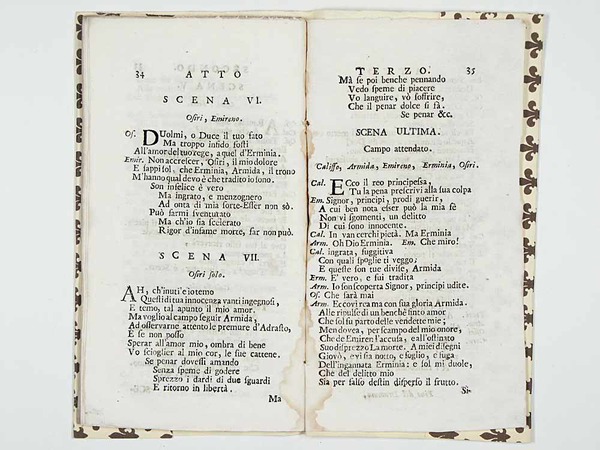 34 ATTO
SCENA VI.
Osiri, Emireno.
Os. DUolmi, o Duce il tuo fato
Ma troppo infido fosti
All'amor del tuo rege, a quel d'Erminia.
Emir. Non accrescer, Osiri, il mio dolore
E sappi sol, che Erminia, Armida, il trono
M'hanno qual devo è che tradito io sono.
Son infelice è vero
Ma ingrato, e menzognero
Ad onta di mia sorte Esser non sò.
Può farmi sventurato
Ma ch'io sia scelerato
Rigor d'infame morte, far non può.
SCENA VII.
Osiri solo.
AH, ch'inuti e io temo
Questi di tua innocenza vanti ingegnosi,
E temo, tal apunto il mio amor.
Ma voglio al campo seguir Armida,
Ad osservarne attento le premure d'Adrasto,
E se non posso
Sperar all'amor mio, ombra di bene
Vo scioglier al mio cor, le sue cattene.
Se penar dovessi amando
Senza speme di godere
Sprezzo i dardi di due sguardi
E ritorno in libertà.
Ma
TERZO. 35
Mà se poi benche pennando
Vedo speme di piacere
Vo languire, vò soffrire,
Che il penar dolce si fà.
Se penar &c.
SCENA ULTIMA.
Campo attendato.
Califfo, Armida, Emireno, Erminia, Osiri.
Cal. ECco il reo principessa,
Tu la pena prescrivi alla sua colpa
Em. Signor, principi, prodi guerir,
A cui ben nota esser può la mia fè
Non vi sgomenti, un delitto
Di cui sono innocente.
Cal. In van cerchi pietà. Ma Erminia
Arm. Oh Dio Erminia. Em. Che miro!
Cal. ingrata, fuggitiva
Con quali spoglie ti veggo;
E queste son tue divise, Armida
Erm. E' vero, e fui tradita
Arm. Io son scoperta Signor, principi udite.
Os. Che sarà mai
Arm. Eccovi rea ma con sua gloria Armida.
Alle ripulse di un benché finto amor
Che sol fu parto delle vendette mie;
Men dovea, per scampo del mio onore,
Che de Emiren l'accusa, e all'ostinato
Suo disprezzo La morte. A miei disegni
Giovò, e vi sia notto, e foglio, e fuga
Dell'ingannata Erminia: e sol mi duole,
Che del delitto mio
Sia per falso destin disperso il frutto.
Si-